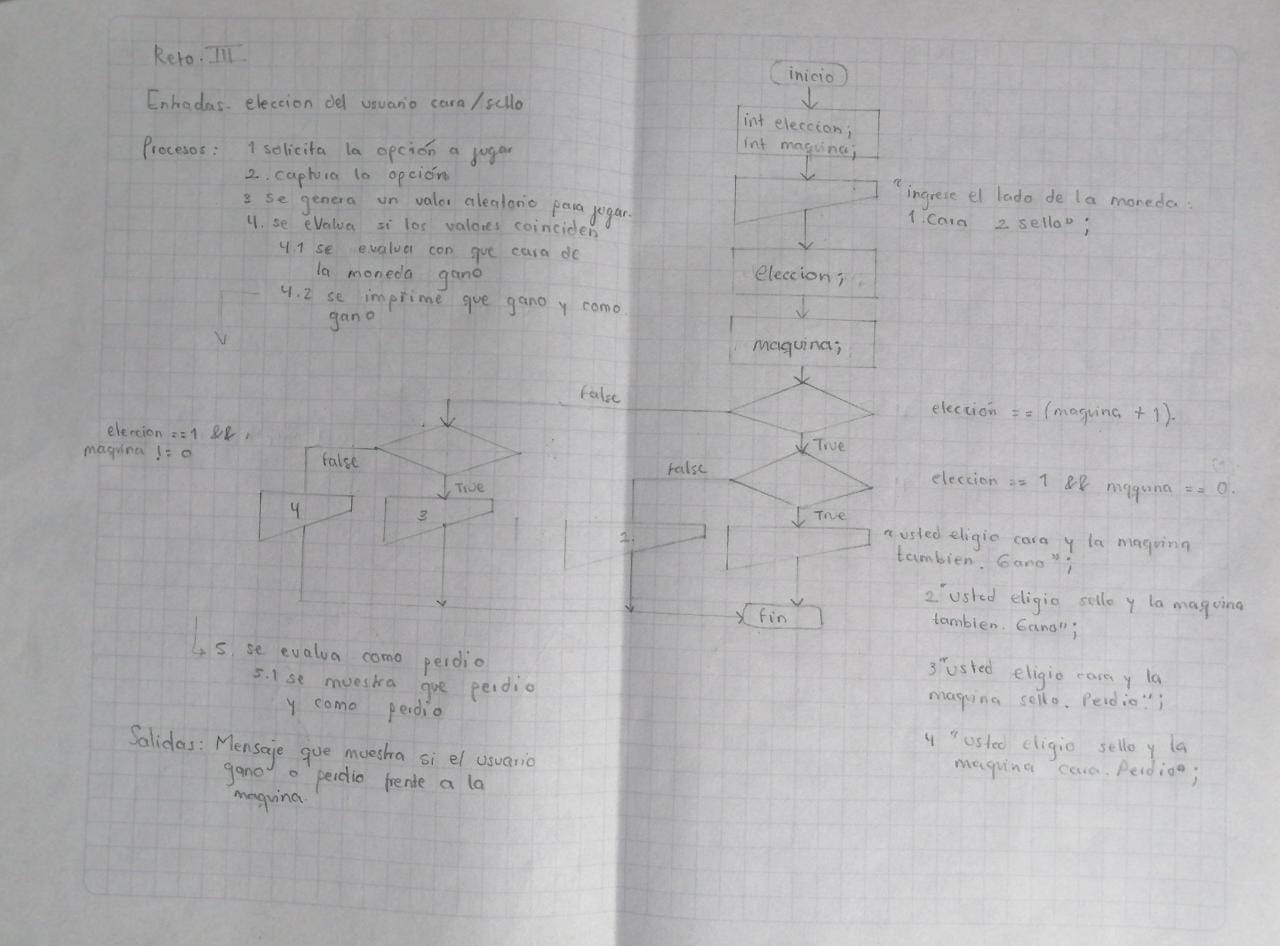 Reto. III
Entradas. eleccion del usuario cara/sello
Procesos: 1 solicita la opción a jugar
2. captura la opción
3 se genera un valor aleatorio para jugar.
4. se evalua si los valores coinciden
4.1 se evalua con que cara de
la moneda gano
4.2 se imprime que gano y como
gano
eleccion == 1 &&
maquina != 0
False
True
4
3
5. se evalua como perdio
5.1 se muestra que perdio
y como perdio
Salidas: Mensaje que muestra si el usuario
gano o perdio frente a la
maquina.
inicio
int eleccion;
int maquina;
"ingrese el lado de la moneda:
1. Cara 2 sello";
eleccion;
maquina;
False
elección == (maquina + 1).
True
False
eleccion == 1 && maquina == 0.
True
2.
"usted eligio cara y la maquina
tambien. Gano";
fin
2 "usted eligio sello y la maquina
tambien. Gano";
3 "usted eligio cara y la
maquina sello. Perdio";
4 "usted eligio sello y la
maquina cara. Perdio";